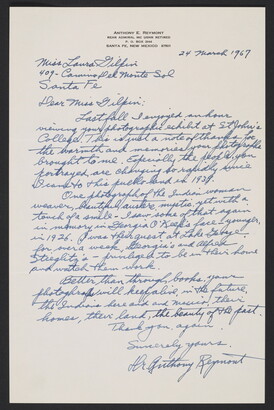 ANTHONY E. REYMONT
REAR ADMIRAL MC USNR RETIRED
P. O. BOX
SANTA FE, NEW MEXICO 87501
24 March 1967
Miss Laura Gilpin
409 - Camino Del Monte Sol
Santa Fe
Dear Miss Gilpin:
Last fall I enjoyed an hour
viewing your photographic exhibit at St. John's
College. This is just a note of thanks for
the warmth and memories your photographs
brought to me. Especially the people you
portrayed are changing so rapidly since
I came to this pueblo land in 1929.
One photograph of the Indian woman
weaver, beautiful, austere mystic, yet with a
touch of a smile - I saw some of that again
in memory in Georgia O'Keefe's face, younger,
in 1926. I was her guest at Lake George
for over a week, Georgia's and Alfred
Stieglitz's - privileged to be in their home
and watch them work.
Better than through books, your
photographs will keep alive, in the future,
the Indians here and in Mexico, their
homes, their land, the beauty of the past.
Thank you, again.
Sincerely yours,
Dr. Anthony Reymont